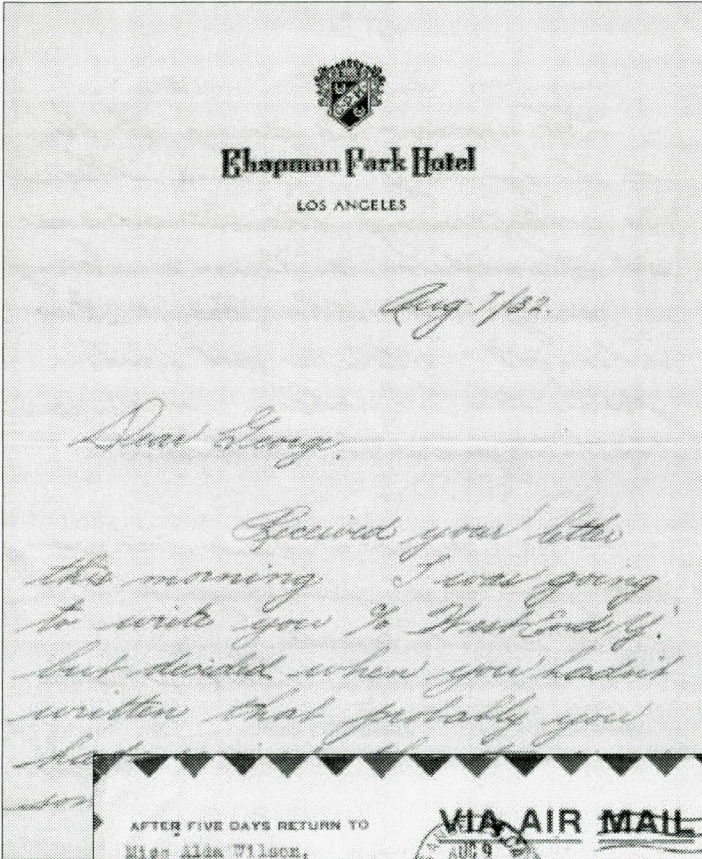 Chapman Park Hotel
LOS ANGELES
Aug 7/32.
Dear George.
Received your letter
this morning I was going
to write you % West End Y.
but decided when you hadn't
written that probably you
had
AFTER FIVE DAYS RETURN TO
Miss Alda Wilson,
VIA AIR MAIL
AUG 9